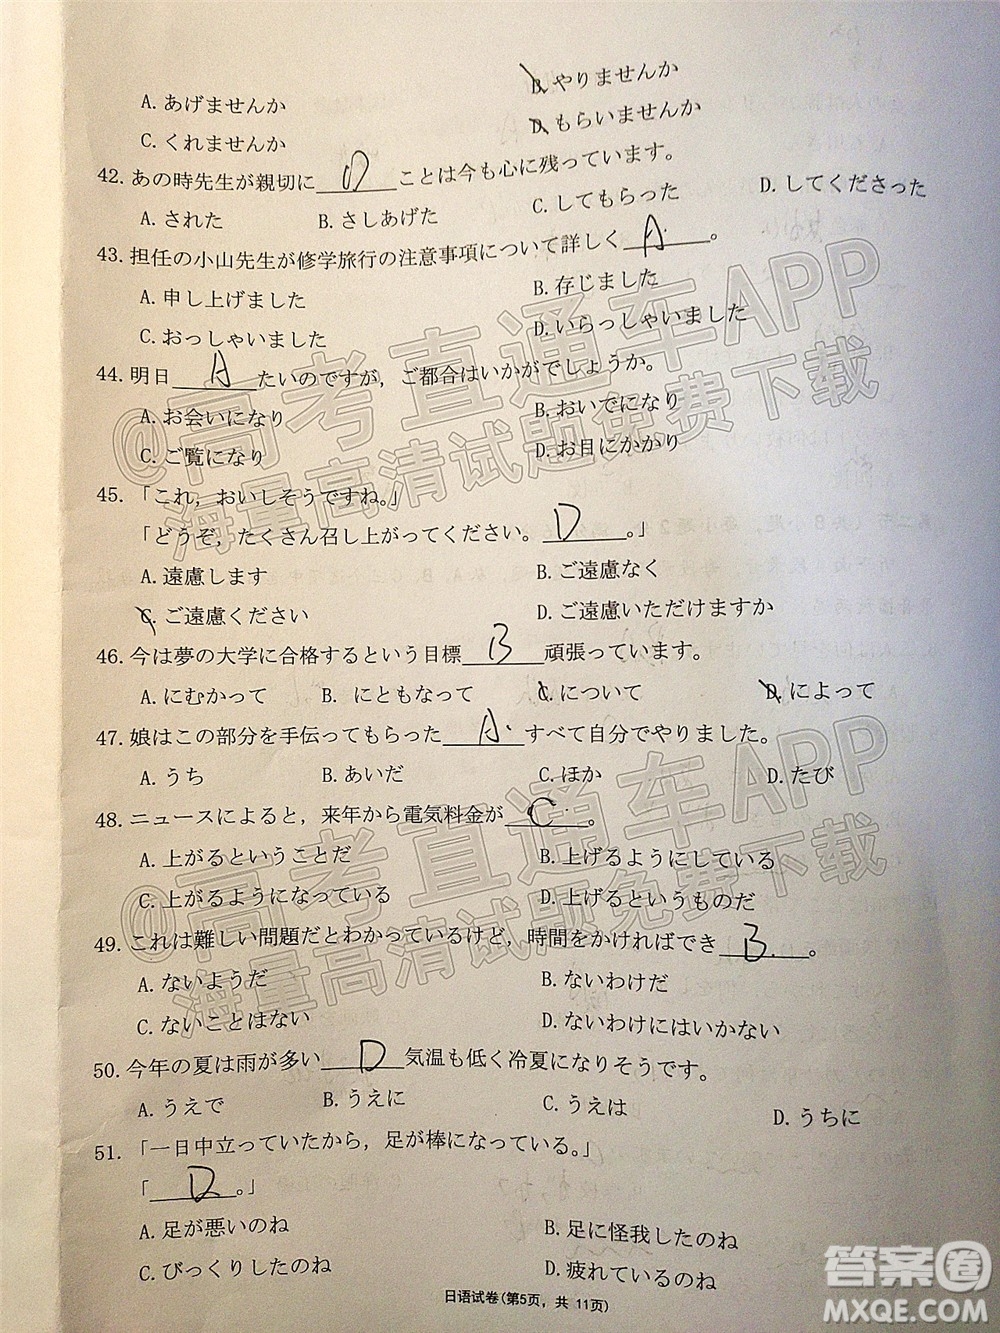 A. あげませんか
B. やりませんか
C. くれませんか
D. もらいませんか
42. あの時先生が親切に D ことは今も心に残っています。
A. された
B. さしあげた
C. してもらった
D. してくださった
43. 担任の小山先生が修学旅行の注意事項について詳しく A 。
A. 申し上げました
B. 存じました
C. おっしゃいました
D. いらっしゃいました
44. 明日 A たいのですが，ご都合はいかがでしょうか。
A. お会いになり
B. おいでになり
C. ご覧になり
D. お目にかかり
45. 「これ，おいしそうですね。」
「どうぞ，たくさん召し上がってください。 D 。」
A. 遠慮します
B. ご遠慮なく
C. ご遠慮ください
D. ご遠慮いただけますか
46. 今は夢の大学に合格するという目標 B 頑張っています。
A. にむかって
B. にともなって
C. について
D. によって
47. 娘はこの部分を手伝ってもらった A. すべて自分でやりました。
A. うち
B. あいだ
C. ほか
D. たび
48. ニュースによると，来年から電気料金が C 。
A. 上がるということだ
B. 上げるようにしている
C. 上がるようになっている
D. 上げるというものだ
49. これは難しい問題だとわかっているけど，時間をかければでき B 。
A. ないようだ
B. ないわけだ
C. ないことはない
D. ないわけにはいかない
50. 今年の夏は雨が多い D 気温も低く冷夏になりそうです。
A. うえで
B. うえに
C. うえは
D. うちに
51. 「一日中立っていたから，足が棒になっている。」
「 D 。」
A. 足が悪いのね
B. 足に怪我したのね
C. びっくりしたのね
D. 疲れているのね
日语试卷(第5页，共 11页)
@高考直通车APP
海量高清试题免费下载
@高考直通车APP
海量高清试题免费下载
答案圈
MXQE.COM